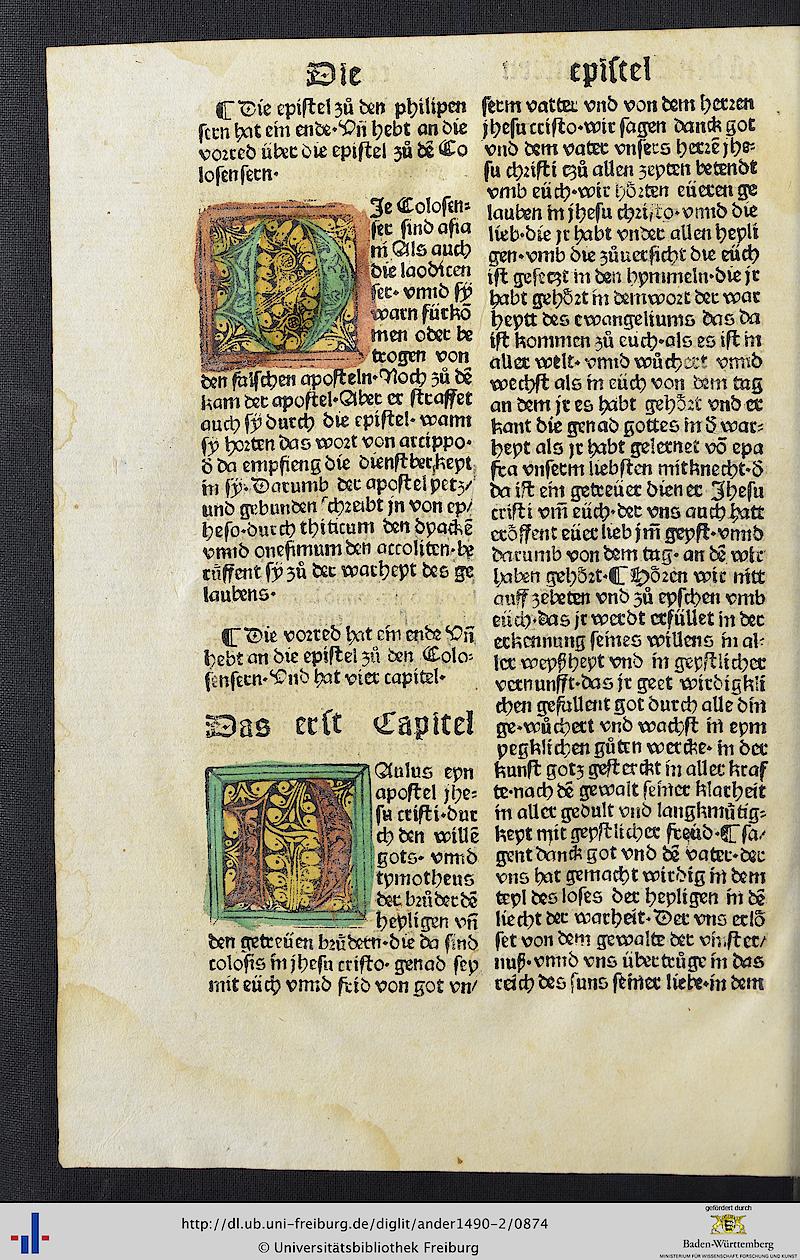 Die epistel
¶ Die epistel zů den philipen
sern hat ein ende·Vñ hebt an die
vorred über die epistel zů dē Co
losensern·
Je Colosen⸗
ser sind asia
ni Als auch
die laodicen
ser· vnnd sÿ
warn fürkō
men oder be
trogen von
den falschen aposteln·Noch zů dē
kam der apostel·Aber er straffet
auch sÿ durch die epistel· wann
sy horten das wort von arcippo·
d̄ da empfieng die dienstberkeyt
in sÿ·Darumb der apostel yetz/
und gebunden schreibt jn von ep/
heso·durch thiticum den dyackē
vnnd onesimum den accoliten·be
růffent sÿ zů der warheyt des ge
laubens·
¶ Die vorred hat ein ende Vñ
hebt an die epistel zů den Colo⸗
sensern·Vnd hat vier capitel·
Das erst Capitel
Aulus eyn
apostel jhe⸗
su cristi·dur
ch den willē
gots· vnnd
tymotheus
der brůder dē
heyligen vñ
den getreüen brůdern·die da sind
colosis in jhesu cristo· genad sey
mit eüch vnnd frid von got vn/
serm vatter vnd von dem herren
jhesu cristo·wir sagen danck got
vnd dem vater vnsers herrē jhe⸗
su christi tzů allen zeyten betendt
vmb eüch·wir hörten eüeren ge
lauben in jhesu christo·vnnd die
lieb·die jr habt vnder allen heyli
gen·vmb die zůuersicht die eüch
ist gesetzt in den hymmeln·die jr
habt gehört in dem wort der war
heytt des ewangeliums das da
ist kommen zů euch·als es ist in
aller welt· vnnd wůchert vnnd
wechst als in eüch von dem tag
an dem jr es habt gehört vnd er
kant die genad gottes in d̄ war⸗
heyt als jr habt gelernet vō epa
fra vnserm liebsten mitknecht·d̄
da ist ein getreüer diener Jhesu
cristi vm̄ eüch·der vns auch hatt
eröffent eüer lieb jm̄ geyst·vnnd
darumb von dem tag· an dē wir
haben gehört·¶ Hören wir nitt
auff zebeten vnd zů eyschen vmb
eüch·das jr werdt erfüllet in der
erkennung seines willens in al⸗
ler weyßheyt vnd in geystlicher
vernunfft·das jr geet wirdigkli
chen gefallent got durch alle din
ge·wůchert vnd wachst in eym
yegklichen gůten wercke· in der
kunst gotz gesterckt in aller kraf
te·nach dē gewalt seiner klarheit
in aller gedult vnd langkmůtig⸗
keyt mit geystlicher freüd·¶ sa/
gent danck got vnd dē vater·der
vns hat gemacht wirdig in dem
teyl des loses der heyligen in dē
liecht der warheit·Der vns erlö
set von dem gewalte der vinster/
nuß·vnnd vns übertrůge in das
reich des suns seiner liebe·in dem
http://dl.ub.uni-freiburg.de/diglit/ander1490-2/0874
© Universitätsbibliothek Freiburg
gefördert durch
Baden-Württemberg
MINISTERIUM FÜR WISSENSCHAFT, FORSCHUNG UND KUNST